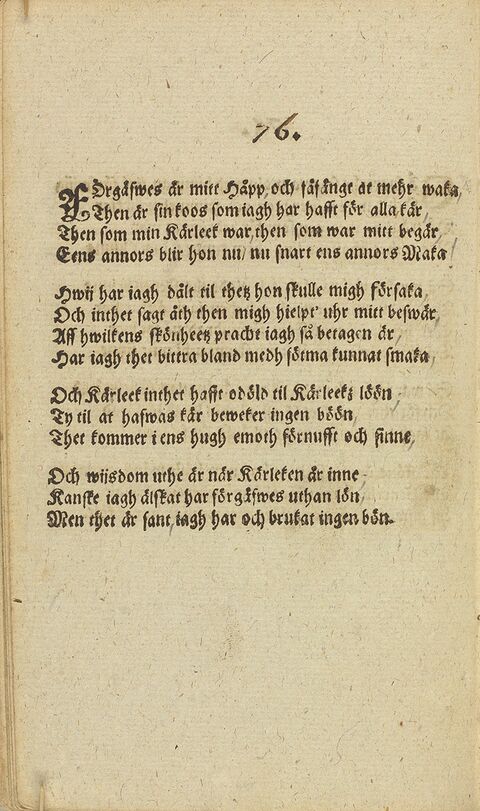 76.
FÖrgäfwes är mitt Håpp och fåfängt at mehr waka,
Then är sin koos som iagh har hafft för alla kär,
Then som min Kärleek war, then som war mitt begär,
Eens annors blir hon nu/ nu snart ens annors Maka
Hwij har iagh dålt til thetz hon skulle migh försaka,
Och inthet sagt åth then migh hielpt' uhr mitt beswär,
Aff hwilkens skönheetz pracht iagh så betagen är,
Har iagh thet bittra bland medh sötma kunnat smaka,
Och Kärleek inthet hafft odöld til Kärleekz löön,
Ty til at hafwas kär beweker ingen böön,
Thet kommer i ens hugh emoth förnufft och sinne,
Och wijsdom uthe är när Kärleken är inne
Kanske iagh älskat har förgäfwes uthan lön,
Men thet är sant, iagh har och brukat ingen bön.